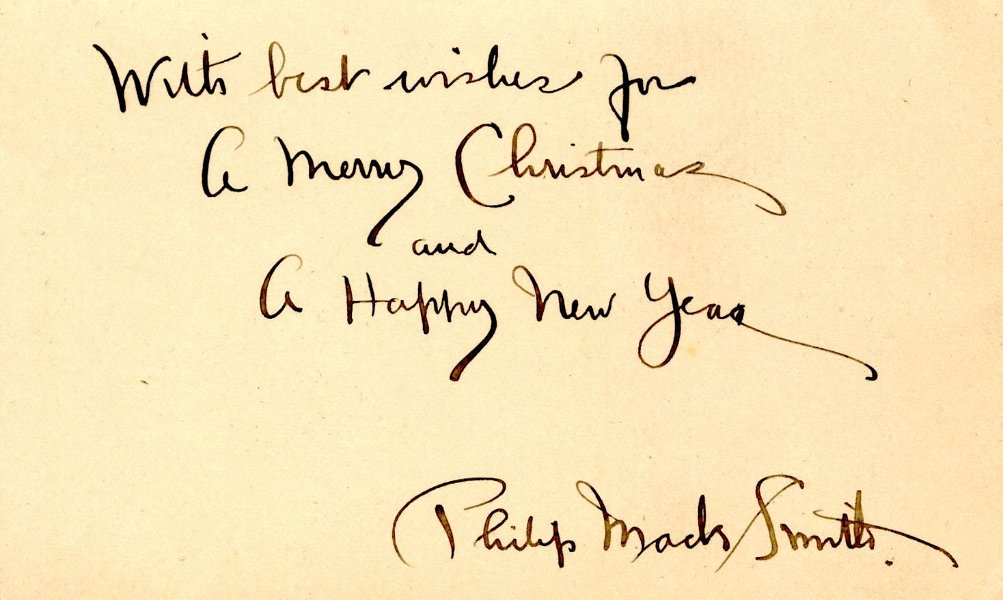 With best wishes for
A Merry Christmas
and
A Happy New Year
Philip Mack Smith.